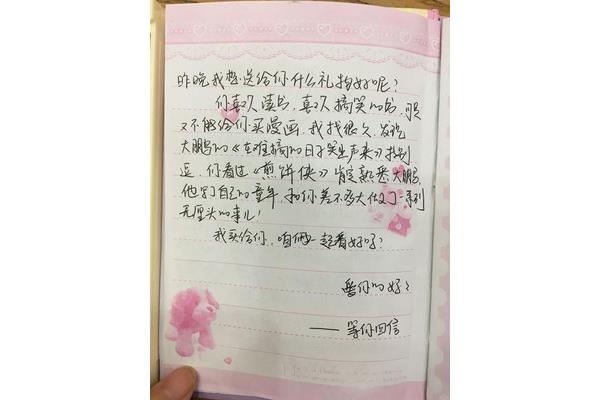 昨晚我想送给你什么礼物好呢？
你喜欢读书，喜欢搞笑的书，可是
又不能给你买漫画，我找很久，发现
大鹏的《在难搞的日子笑出声来》特别
逗，你看过《煎饼侠》肯定熟悉大鹏，
他写自己的童年，和你差不多大做了一系列
无厘头的事儿！
我买给你，咱俩一起看好吗？
等你回信